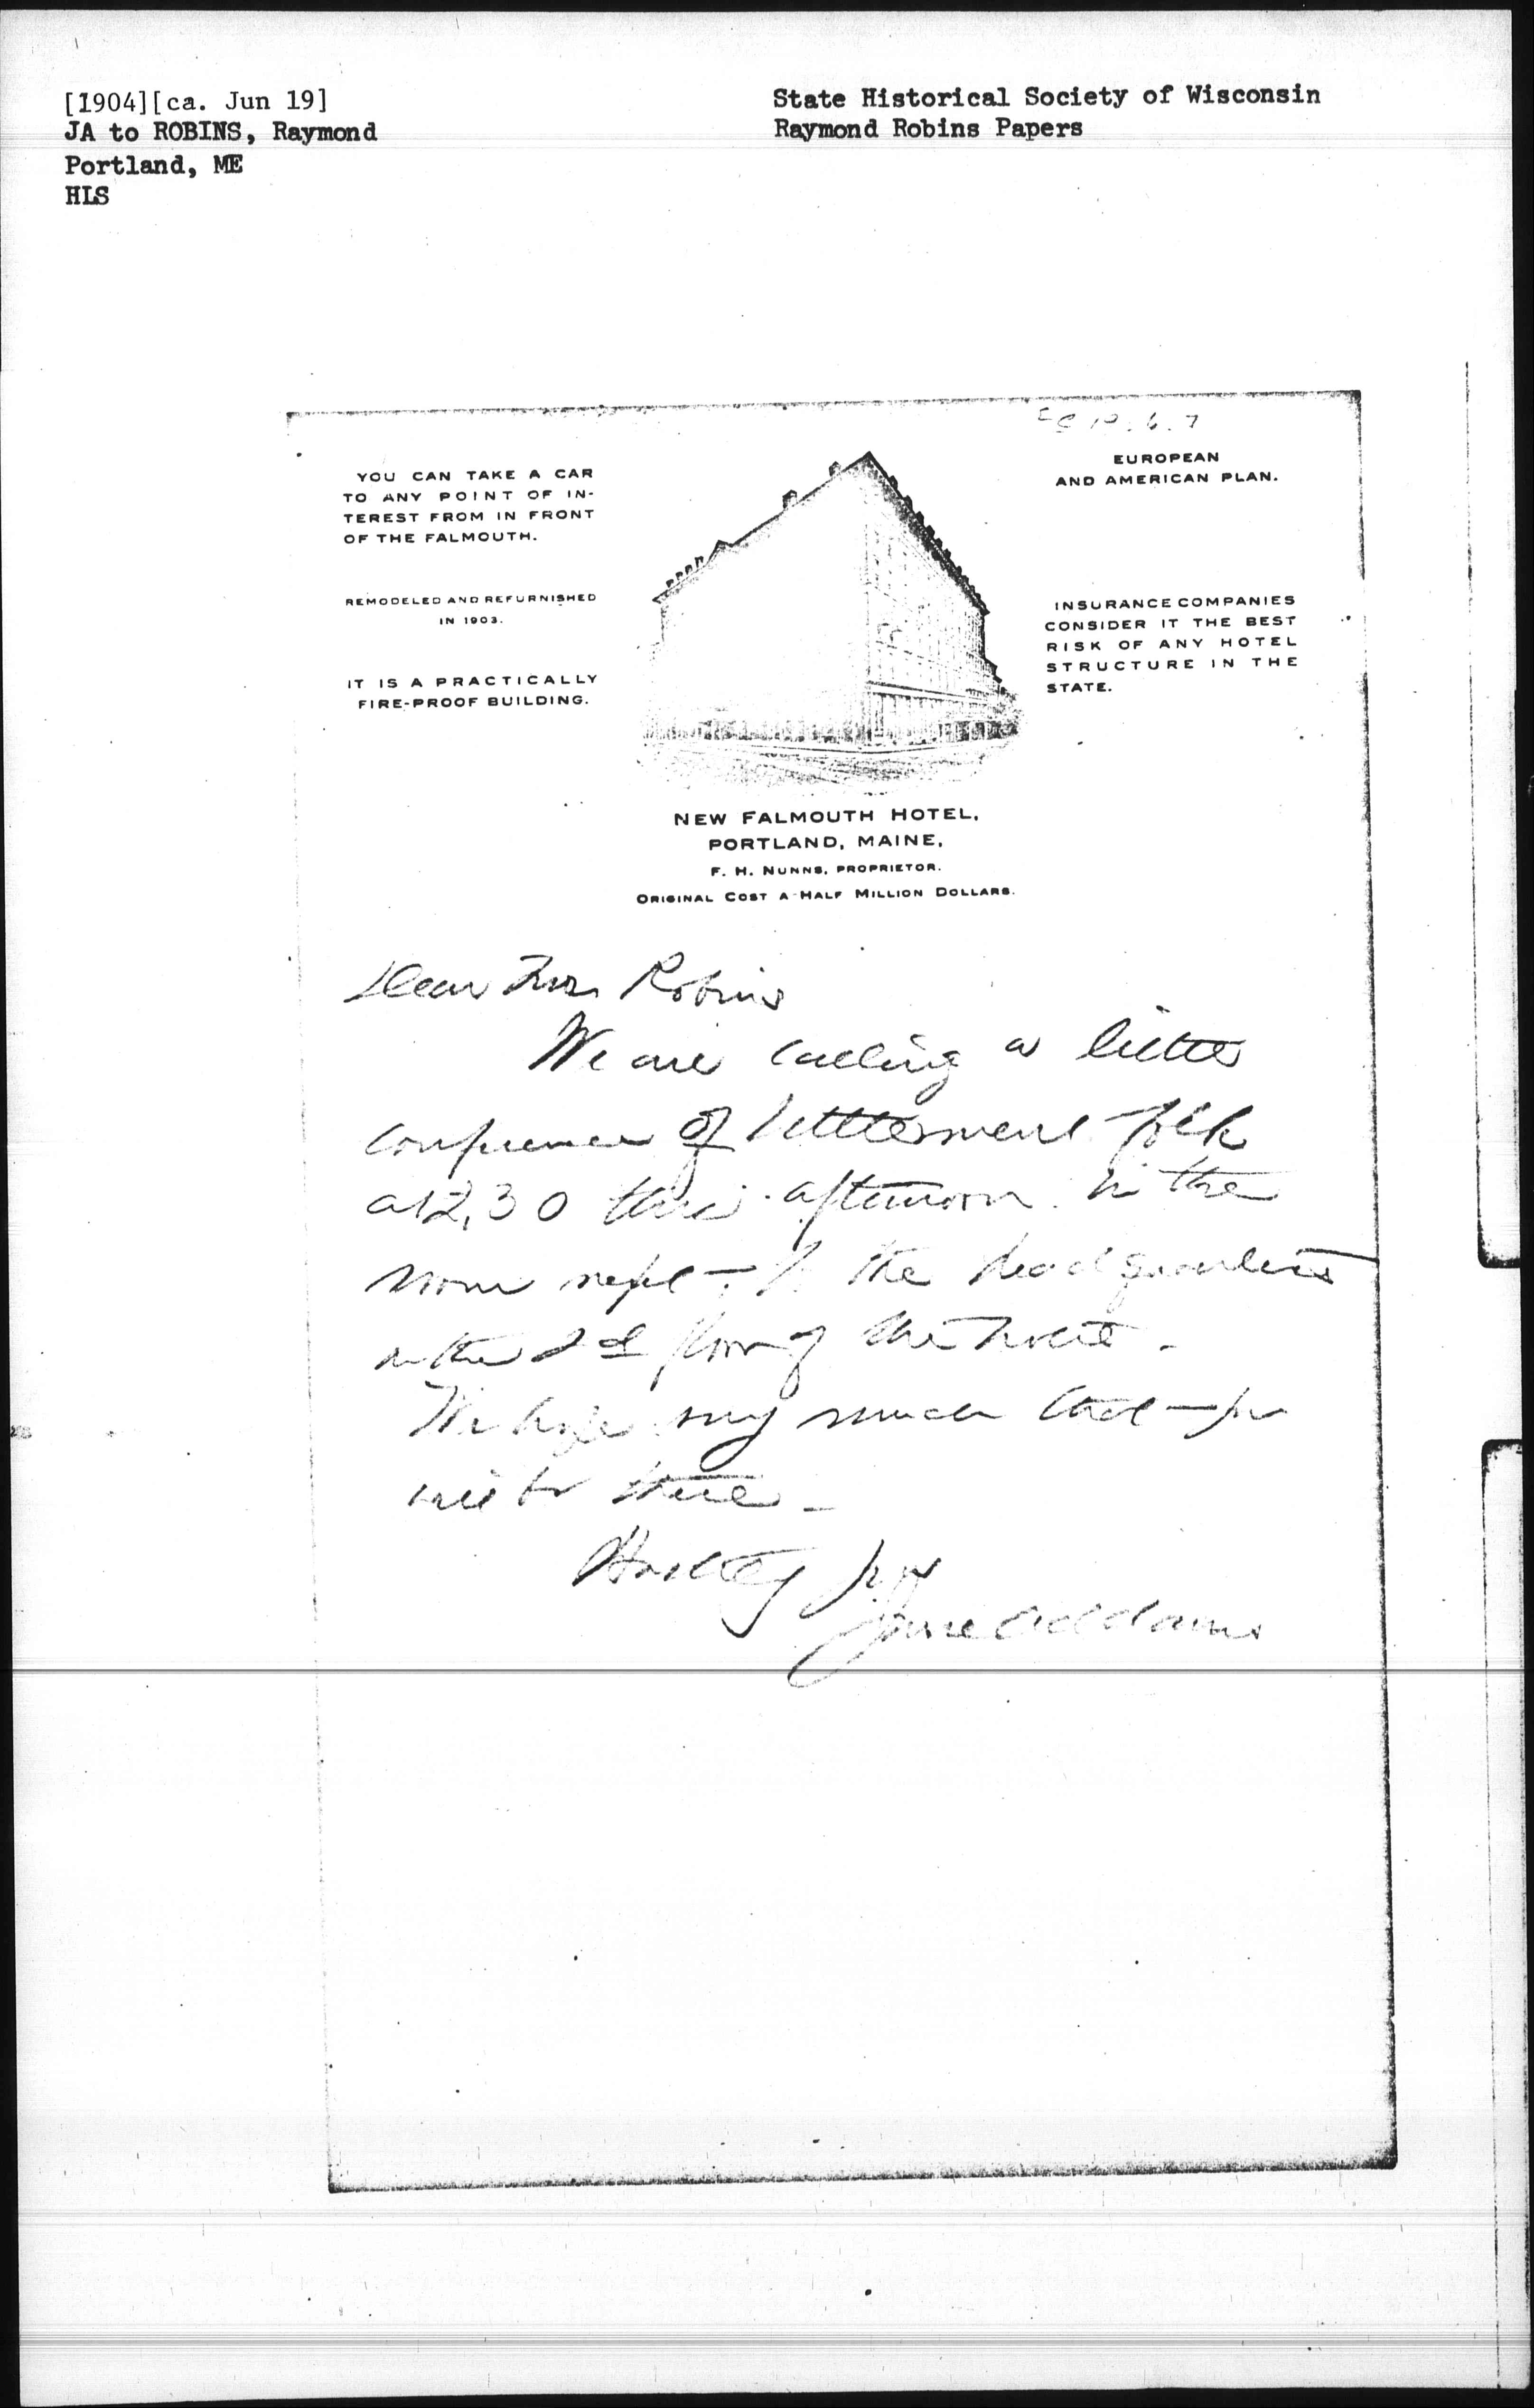 [1904][ca. Jun 19]
JA to ROBINS, Raymond
Portland, ME
HLS
State Historical Society of Wisconsin
Raymond Robins Papers
YOU CAN TAKE A CAR
TO ANY POINT OF IN-
TEREST FROM IN FRONT
OF THE FALMOUTH.
REMODELED AND REFURNISHED
IN 1903.
IT IS A PRACTICALLY
FIRE-PROOF BUILDING.
EUROPEAN
AND AMERICAN PLAN.
INSURANCE COMPANIES
CONSIDER IT THE BEST
RISK OF ANY HOTEL
STRUCTURE IN THE
STATE.
NEW FALMOUTH HOTEL,
PORTLAND, MAINE,
F. H. NUNNS, PROPRIETOR.
ORIGINAL COST A HALF MILLION DOLLARS.
Dear Mr. Robins
We are calling a little
conference of settlement folk
at 2,30 this afternoon in the
room next to the headquarters
on the 2d floor of the hotel.
We hope very much that you
will be there –
Hastily yrs
Jane Addams